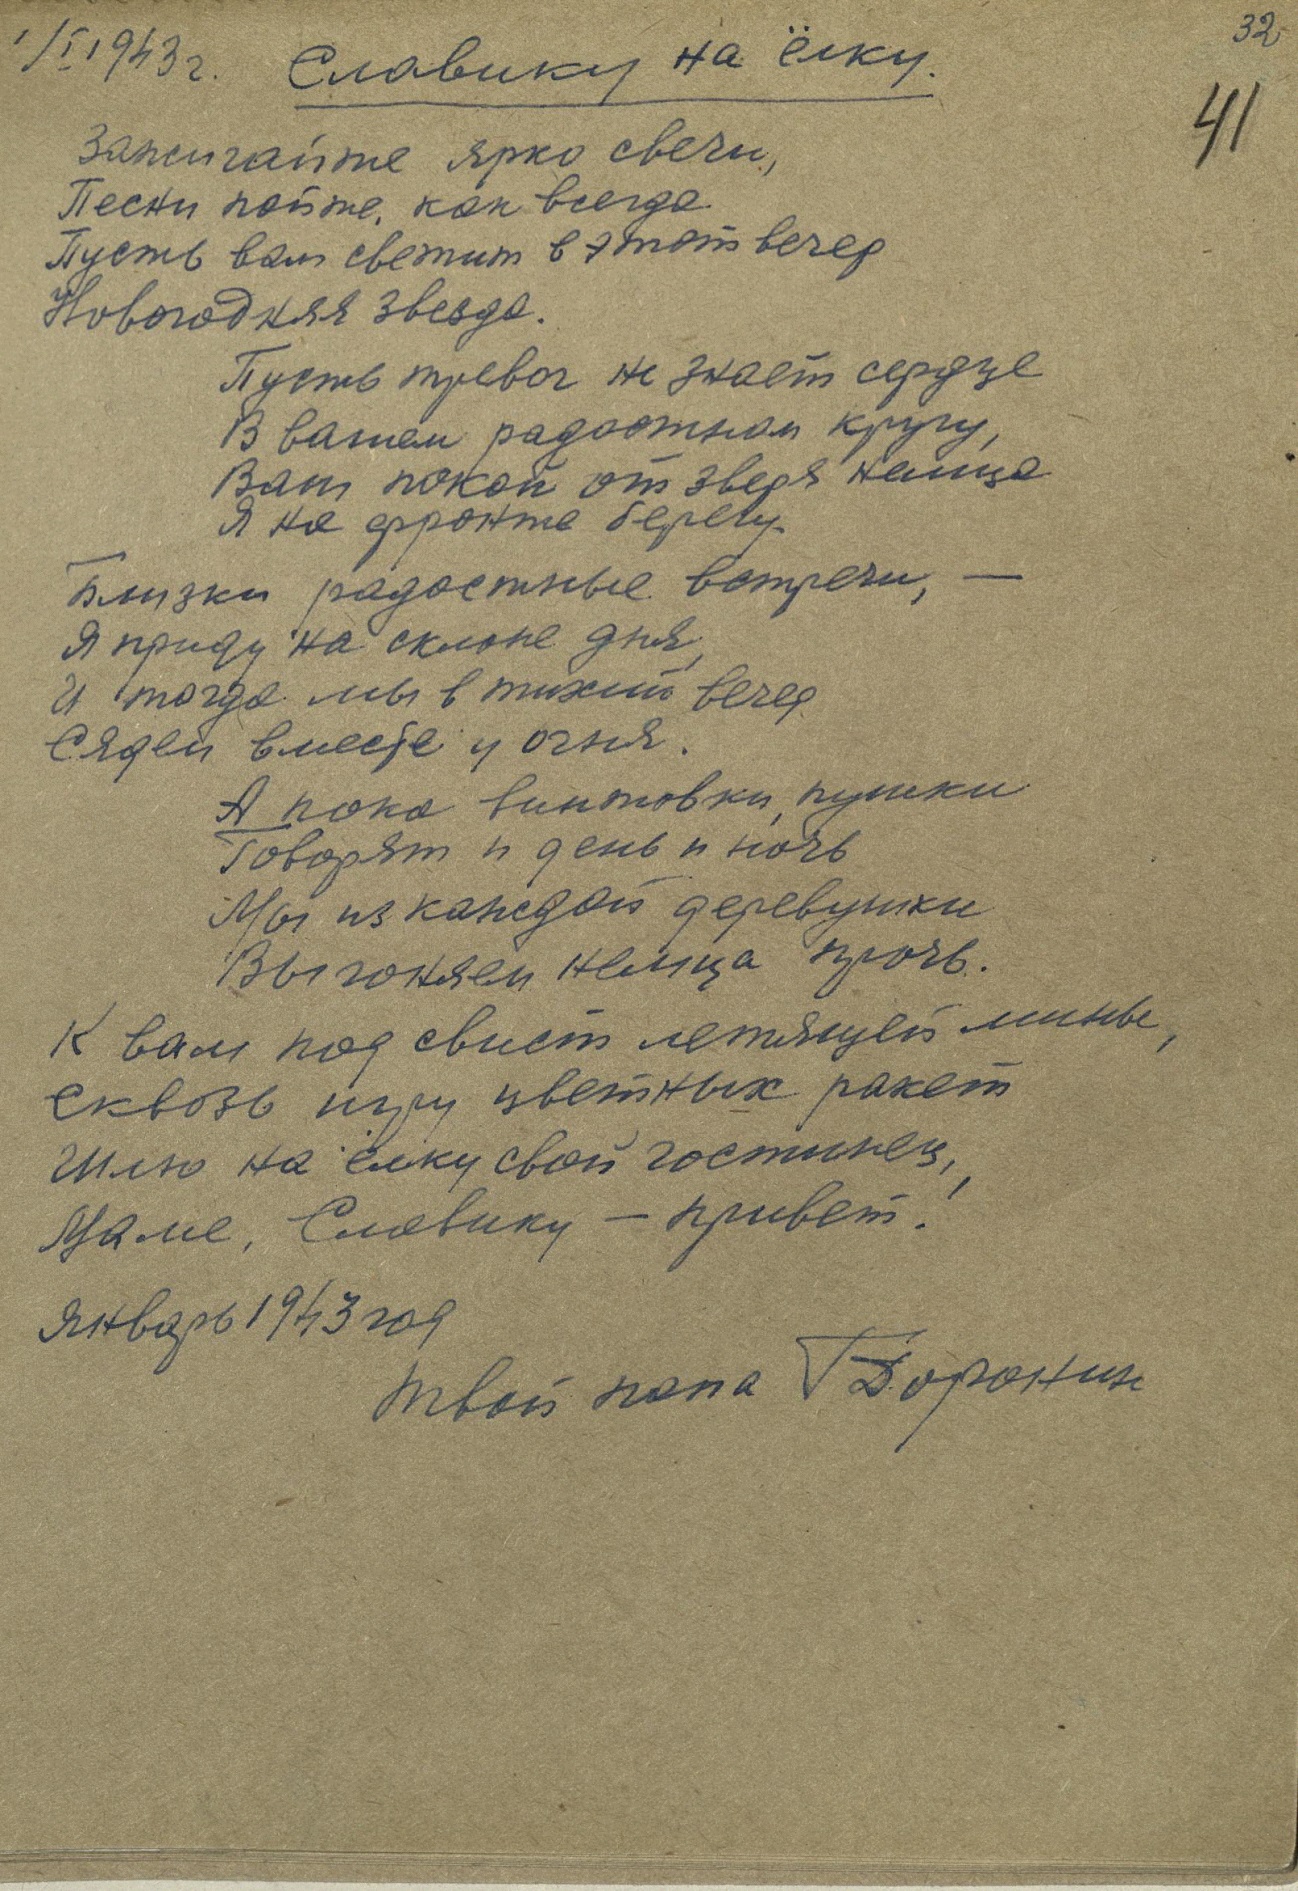 1/I 1943 г. Славику на ёлку.
32
41
Зажигайте ярко свечи,
Песни пойте, как всегда
Пусть вам светит в этот вечер
Новогодняя звезда.
Пусть тревог не знает сердце
В вашем радостном кругу,
Ваш покой от зверя немца
Я на фронте берегу.
Близки радостные встречи, —
Я приду на склоне дня,
И тогда мы в тихий вечер
Сядем вместе у огня.
А пока винтовки, пушки
Говорят и день и ночь
Мы из каждой деревушки
Выгоняем немца прочь.
К вам под свист летящей мины,
Сквозь игру цветных ракет
Шлю на ёлку свой гостинец,
Маме, Славику — привет!
Январь 1943 год
Твой папа Г Доронин